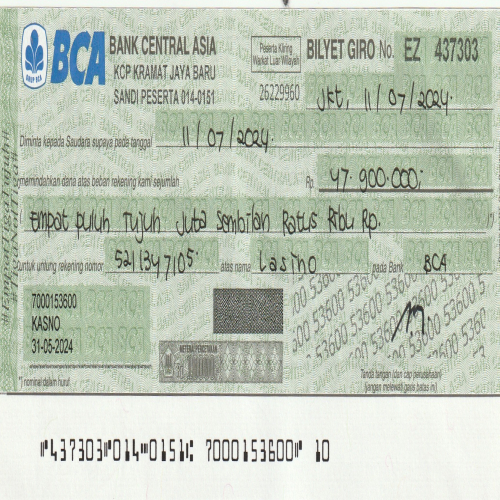 BCA
BANK CENTRAL ASIA
KCP KRAMAT JAYA BARU
SANDI PESERTA 014-0151
Peserta Kliring
Warkat Luar Wilayah
26229960
BILYET GIRO No. EZ 437303
Jkt, 11/07/2024
Diminta kepada Saudara supaya pada tanggal 11/07/2024
memindahkan dana atas beban rekening kami sejumlah Rp. 47.900.000,-
( Empat puluh Tujuh Juta Sembilan Ratus Ribu Rp. )
untuk untung rekening nomor 5211347105 atas nama Lasino pada Bank BCA
7000153600
KASNO
31-05-2024
METERAI PENGETEKAN
*) nominal dalam huruf
Tanda tangan (dan cap perusahaan)
(jangan melewati garis batas ini)
53600 53600 53600
437303 014 0151 7000153600 10